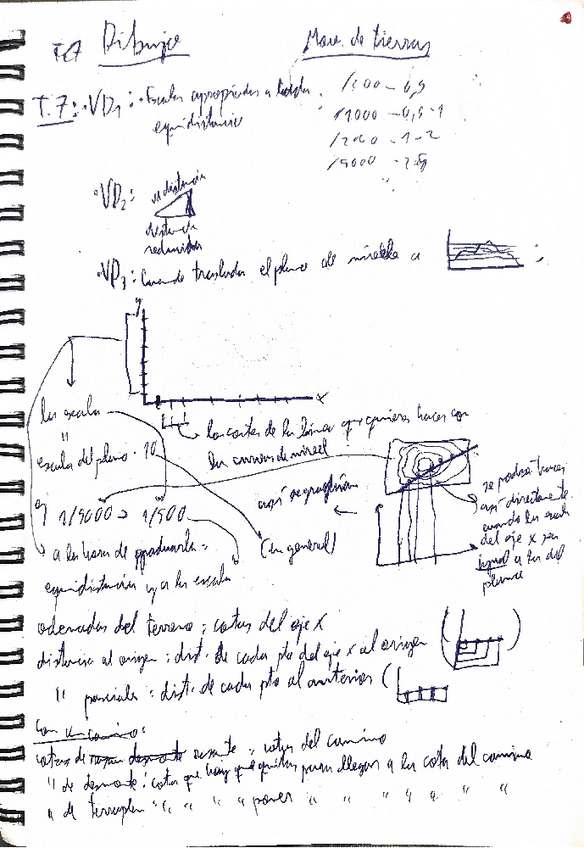 Dibujo
Mov. de tierras
T.7: · VD1: · Escalas apropiadas a cada
equidistancia
1/500 - 0,5
1/1000 - 0,5-1
1/2000 - 1-2
1/5000 -
· VD2:
distancia
reducida
· VD3: Cuando trasladas el plano de niveles a
y
x
la escala
"
escala del plano · 10
los cortes de la línea que quieres hacer con
las curvas de nivel
1/5000 → 1/500
(en general)
se podrá hacer
así directamente
cuando la escala
del eje x sea
igual a la del
plano
a la hora de graduarla =
equidistancia y a la escala
ordenadas del terreno: cotas del eje x
distancia al origen: dist. de cada pto del eje x al origen
" parciales: dist. de cada pto al anterior (
Con un camino:
cotas de rasante: cotas del camino
" de desmonte: cotas que hay que quitar para llegar a la cota del camino
" de terraplén " " " " poner " " " " " " "